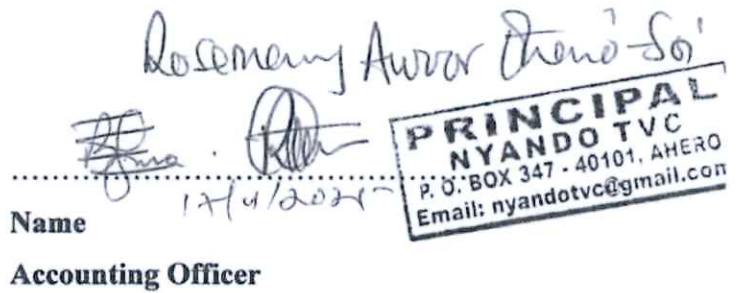 Rosemary Awuor
PRINCIPAL
NYANDO TVC
P. O. BOX 347 - 40101, AHERO
Email: nyandotvc@gmail.com
..........................................
Name
Accounting Officer